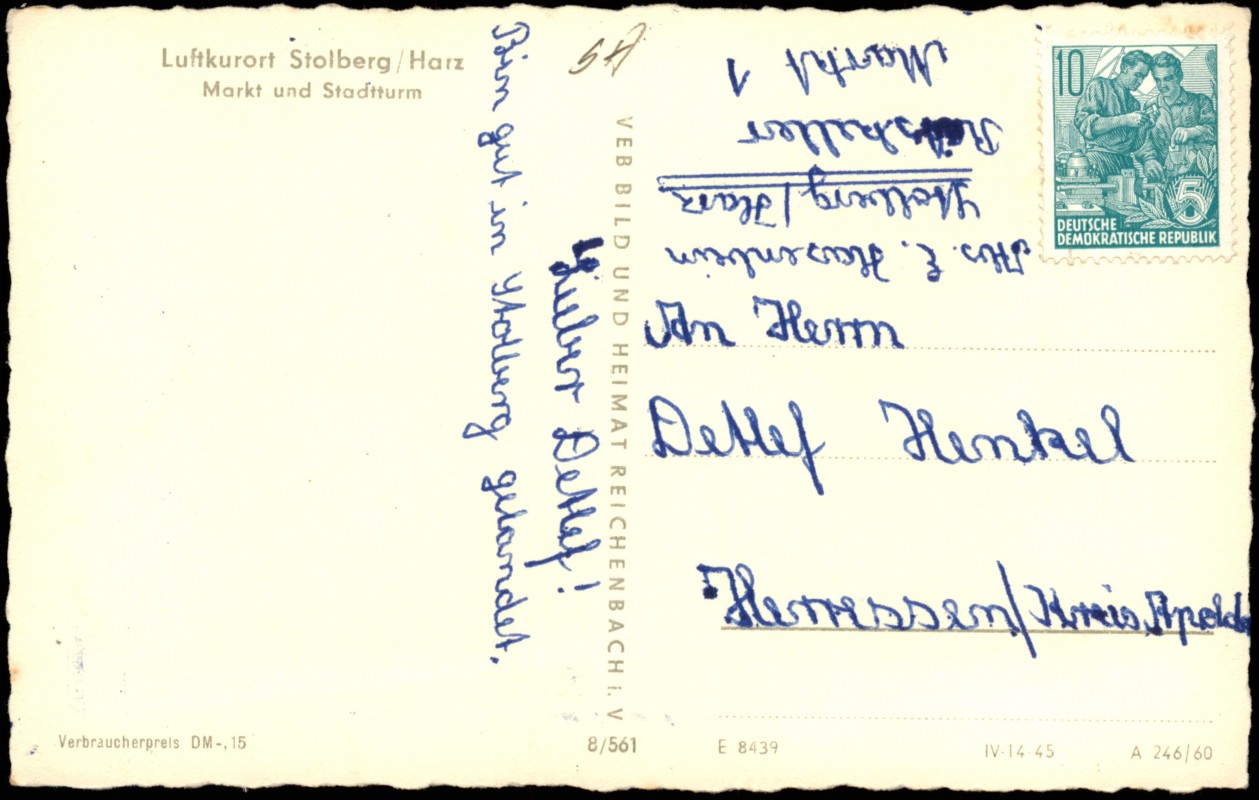 Luftkurort Stolberg/Harz
Markt und Stadtturm
Lieber Detlef!
Bin gut in Stolberg gelandet.
VEB BILD UND HEIMAT REICHENBACH i. V
10
5
DEUTSCHE
DEMOKRATISCHE REPUBLIK
Abs. E. Hasenbein
Stolberg/Harz
Ratskeller
Markt 1
An Herrn
Detlef Henkel
/Kreis Apolda
Verbraucherpreis DM-,15
8/561
E 8439
IV-14-45
A 246/60